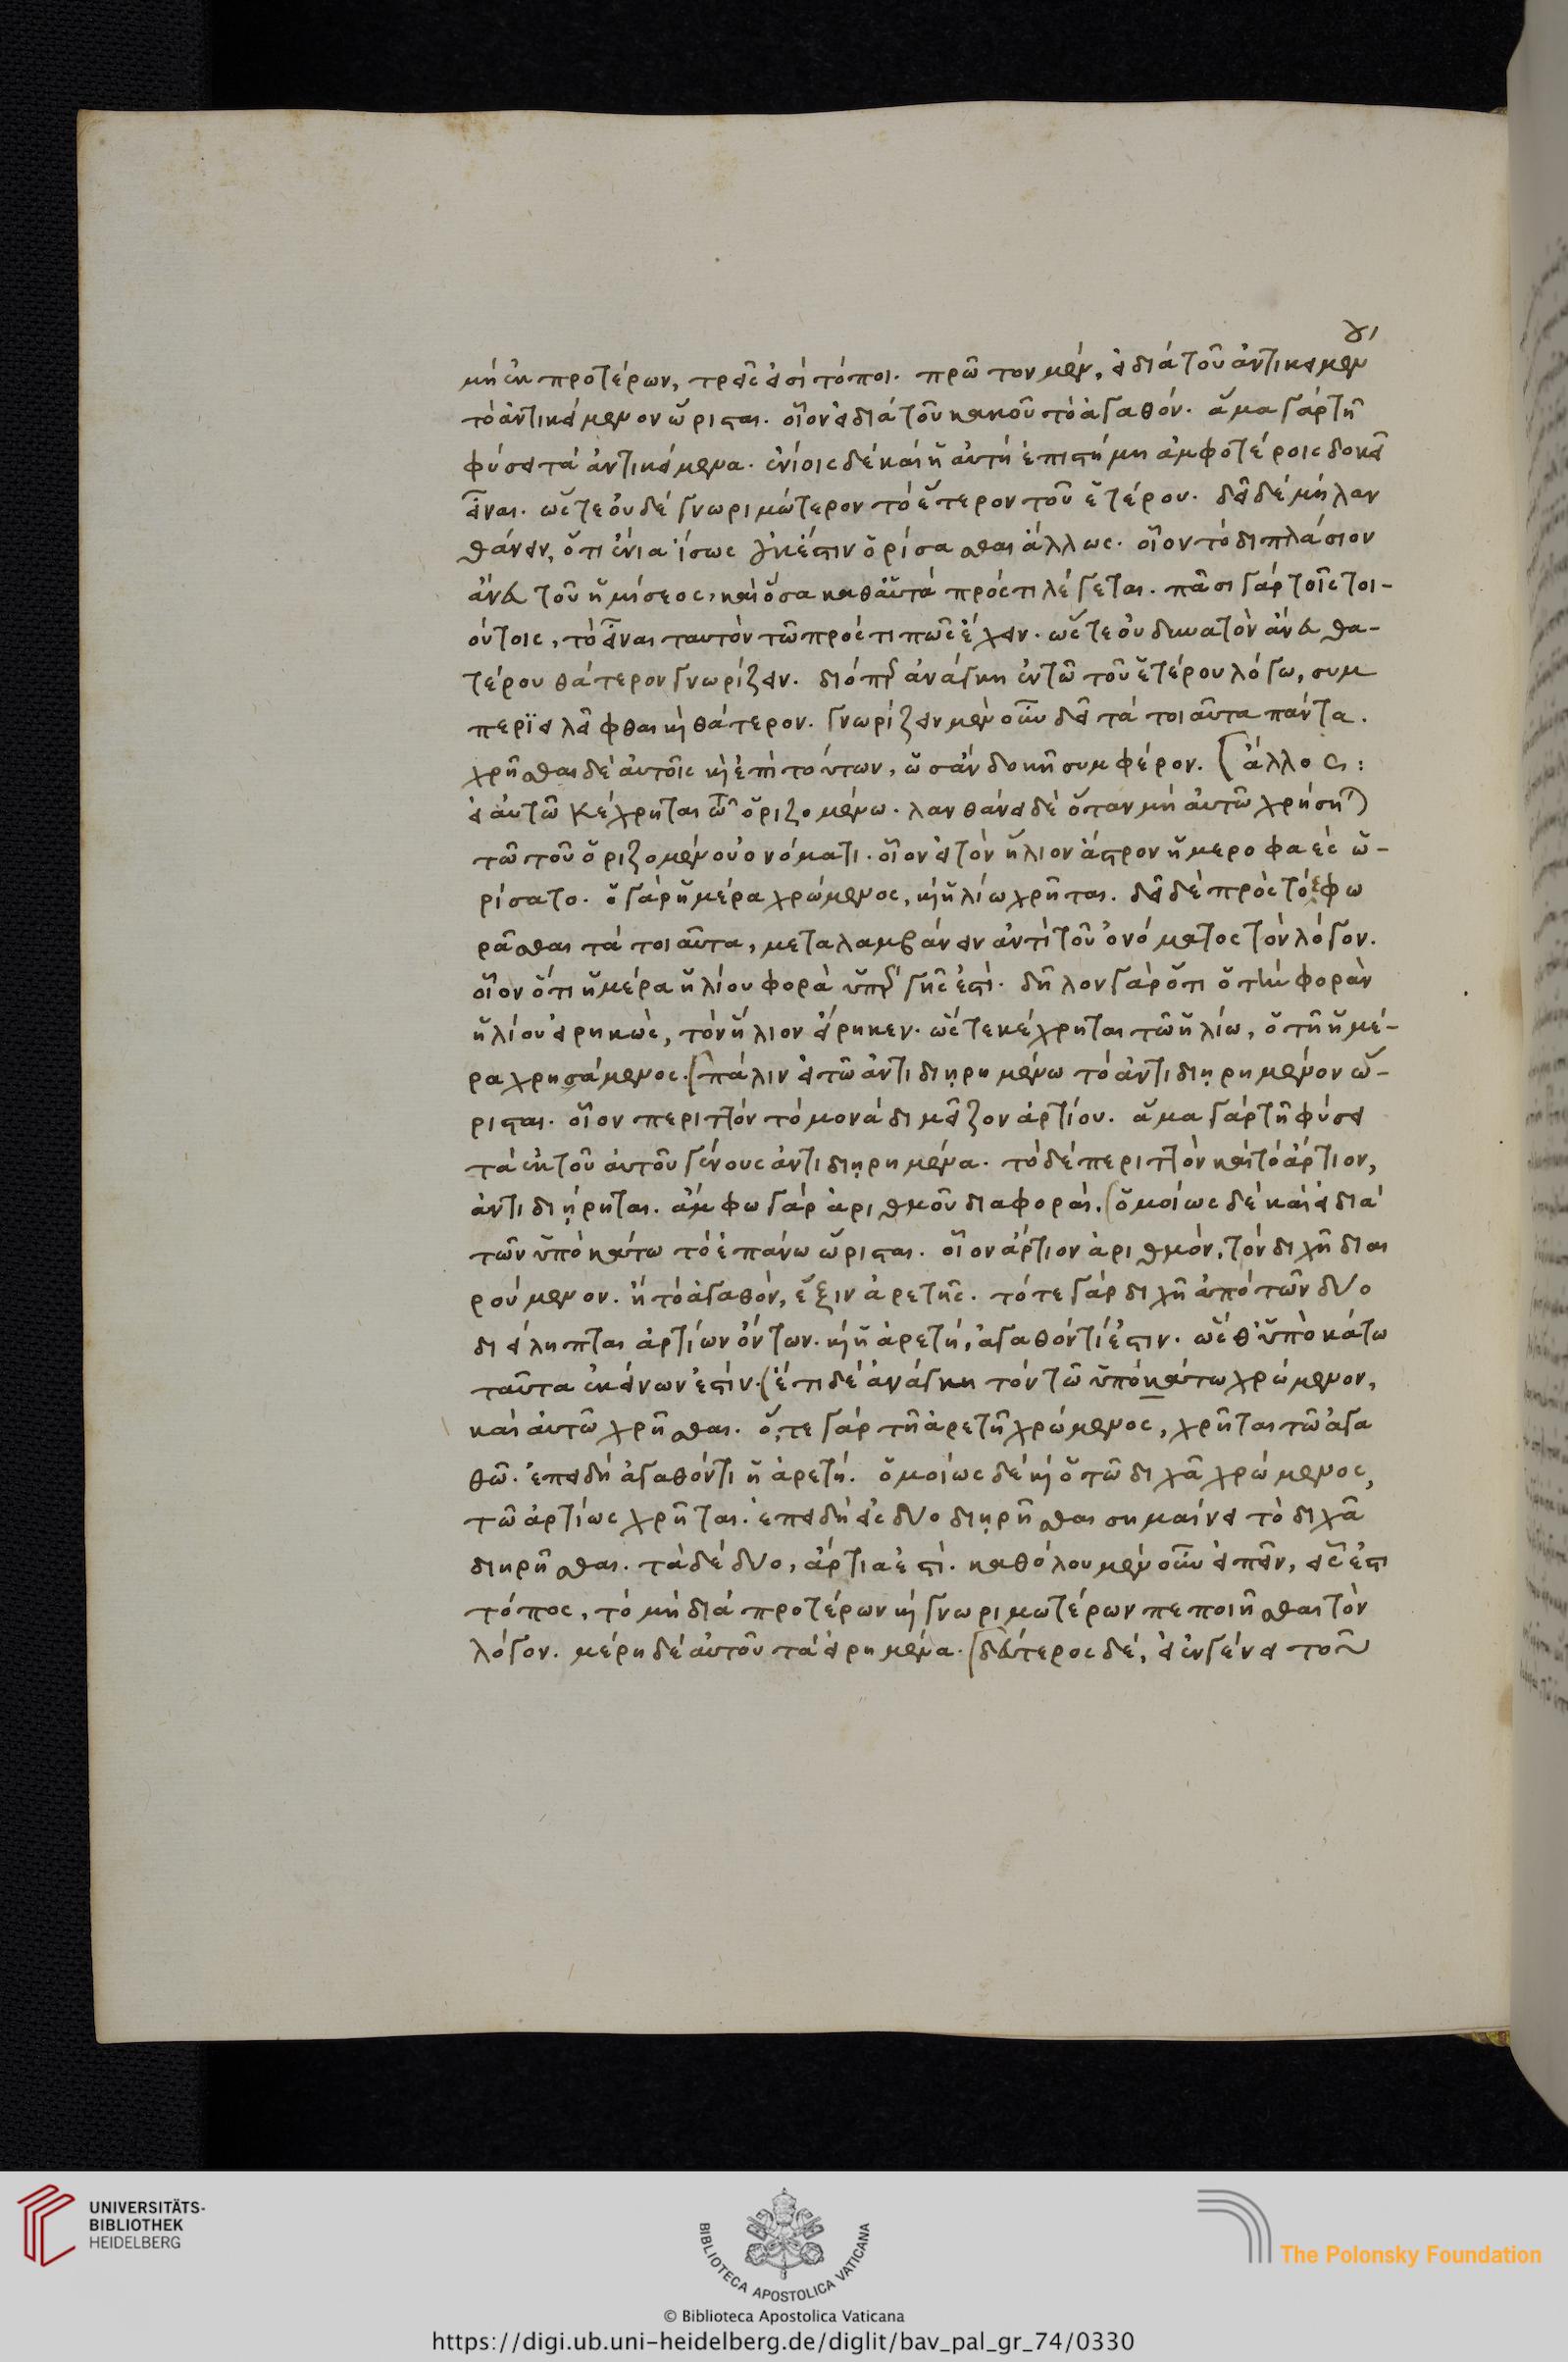 μὴ ἐκ προτέρων, τρεῖς εἰσὶ τόποι. πρῶτον μὲν, εἰ διὰ τοῦ ἀντικειμένου
τὸ ἀντικείμενον ὥρισται. οἷον εἰ διὰ τοῦ κακοῦ τὸ ἀγαθόν. ἅμα γὰρ τῇ
φύσει τὰ ἀντικείμενα. ἐνίοις δὲ καὶ ἡ αὐτὴ ἐπιστήμη ἀμφοτέροις δοκεῖ
εἶναι. ὥστε οὐδὲ γνωριμώτερον τὸ ἕτερον τοῦ ἑτέρου. δεῖ δὲ μὴ λαν
θάνειν, ὅτι ἔνια ἴσως οὐκ ἔστιν ὁρίσασθαι ἄλλως. οἷον τὸ διπλάσιον
ἄνευ τοῦ ἡμίσεος, καὶ ὅσα καθ' αὑτὰ πρός τι λέγεται. πᾶσι γὰρ τοῖς τοι-
ούτοις, τὸ εἶναι ταυτὸν τῶ πρός τι πῶς ἔχειν. ὥστε οὐ δυνατὸν ἄνευ θα-
τέρου θάτερον γνωρίζειν. διόπερ ἀνάγκη ἐν τῶ τοῦ ἑτέρου λόγω, συμ
περιειλεῖφθαι καὶ θάτερον. γνωρίζειν μὲν οὖν δεῖ τὰ τοιαῦτα πάντα.
χρῆσθαι δὲ αὐτοῖς καὶ ἐπὶ τούτων, ὡς ἂν δοκῇ συμφέρον. [ἄλλος:
εἰ αὐτῶ κέχρηται τῶ ὁριζομένω. λανθάνει δὲ ὅταν μὴ αὐτῶ χρήσηται
τῶ τοῦ ὁριζομένου ὀνόματι. οἷον εἰ τὸν ἥλιον ἄστρον ἡμεροφαὲς ὡ-
ρίσατο. ὁ γὰρ ἡμέρα χρώμενος, καὶ ἡλίω χρῆται. δεῖ δὲ πρὸς τὸ φω
ρᾶσθαι τὰ τοιαῦτα, μεταλαμβάνειν ἀντὶ τοῦ ὀνόματος τὸν λόγον.
οἷον ὅτι ἡμέρα ἡλίου φορὰ ὑπὲρ γῆς ἐστί. δῆλον γὰρ ὅτι ὁ τὴν φορὰν
ἡλίου εἰρηκὼς, τὸν ἥλιον εἴρηκεν. ὥστε κέχρηται τῶ ἡλίω, ὁ τῇ ἡμέ-
ρα χρησάμενος. [πάλιν εἰ τῶ ἀντιδιῃρημένω τὸ ἀντιδιῃρημένον ὥ-
ρισται. οἷον περιττὸν τὸ μονάδι μεῖζον ἀρτίου. ἅμα γὰρ τῇ φύσει
τὰ ἐκ τοῦ αὐτοῦ γένους ἀντιδιῃρημένα. τὸ δὲ περιττὸν καὶ τὸ ἄρτιον,
ἀντιδιῄρηται. ἄμφω γὰρ ἀριθμοῦ διαφοραί. (ὁμοίως δὲ καὶ εἰ διὰ
τῶν ὑποκάτω τὸ ἐπάνω ὥρισται. οἷον ἄρτιον ἀριθμὸν, τὸν διχῇ διαι
ρούμενον. ἢ τὸ ἀγαθὸν, ἕξιν ἀρετῆς. τό τε γὰρ διχῇ ἀπὸ τῶν δύο
διείληπται ἀρτίων ὄντων. καὶ ἡ ἀρετὴ, ἀγαθόν τί ἐστιν. ὥσθ' ὑποκάτω
ταῦτα ἐκείνων ἐστίν. (ἔτι δὲ ἀνάγκη τὸν τῶ ὑποκάτω χρώμενον,
καὶ αὐτῶ χρῆσθαι. ὅ, τε γὰρ τῇ ἀρετῇ χρώμενος, χρῆται τῶ ἀγα
θῶ. ἐπειδὴ ἀγαθόν τι ἡ ἀρετή. ὁμοίως δὲ καὶ ὁ τῶ διχᾶ χρώμενος,
τῶ ἀρτίως χρῆται. ἐπειδὴ εἰς δύο διῃρῆσθαι σημαίνει τὸ διχᾶ
διηρῆσθαι. τὰ δὲ δύο, ἄρτιά ἐστί. καθόλου μὲν οὖν εἰπεῖν, εἷς ἐστι
τόπος, τὸ μὴ διὰ προτέρων καὶ γνωριμωτέρων πεποιῆσθαι τὸν
λόγον. μέρη δὲ αὐτοῦ τὰ εἰρημένα. [δεύτερος δὲ, εἰ ἐν γένει τοῦ
UNIVERSITÄTS-
BIBLIOTHEK
HEIDELBERG
BIBLIOTECA APOSTOLICA VATICANA
The Polonsky Foundation
© Biblioteca Apostolica Vaticana
https://digi.ub.uni-heidelberg.de/diglit/bav_pal_gr_74/0330